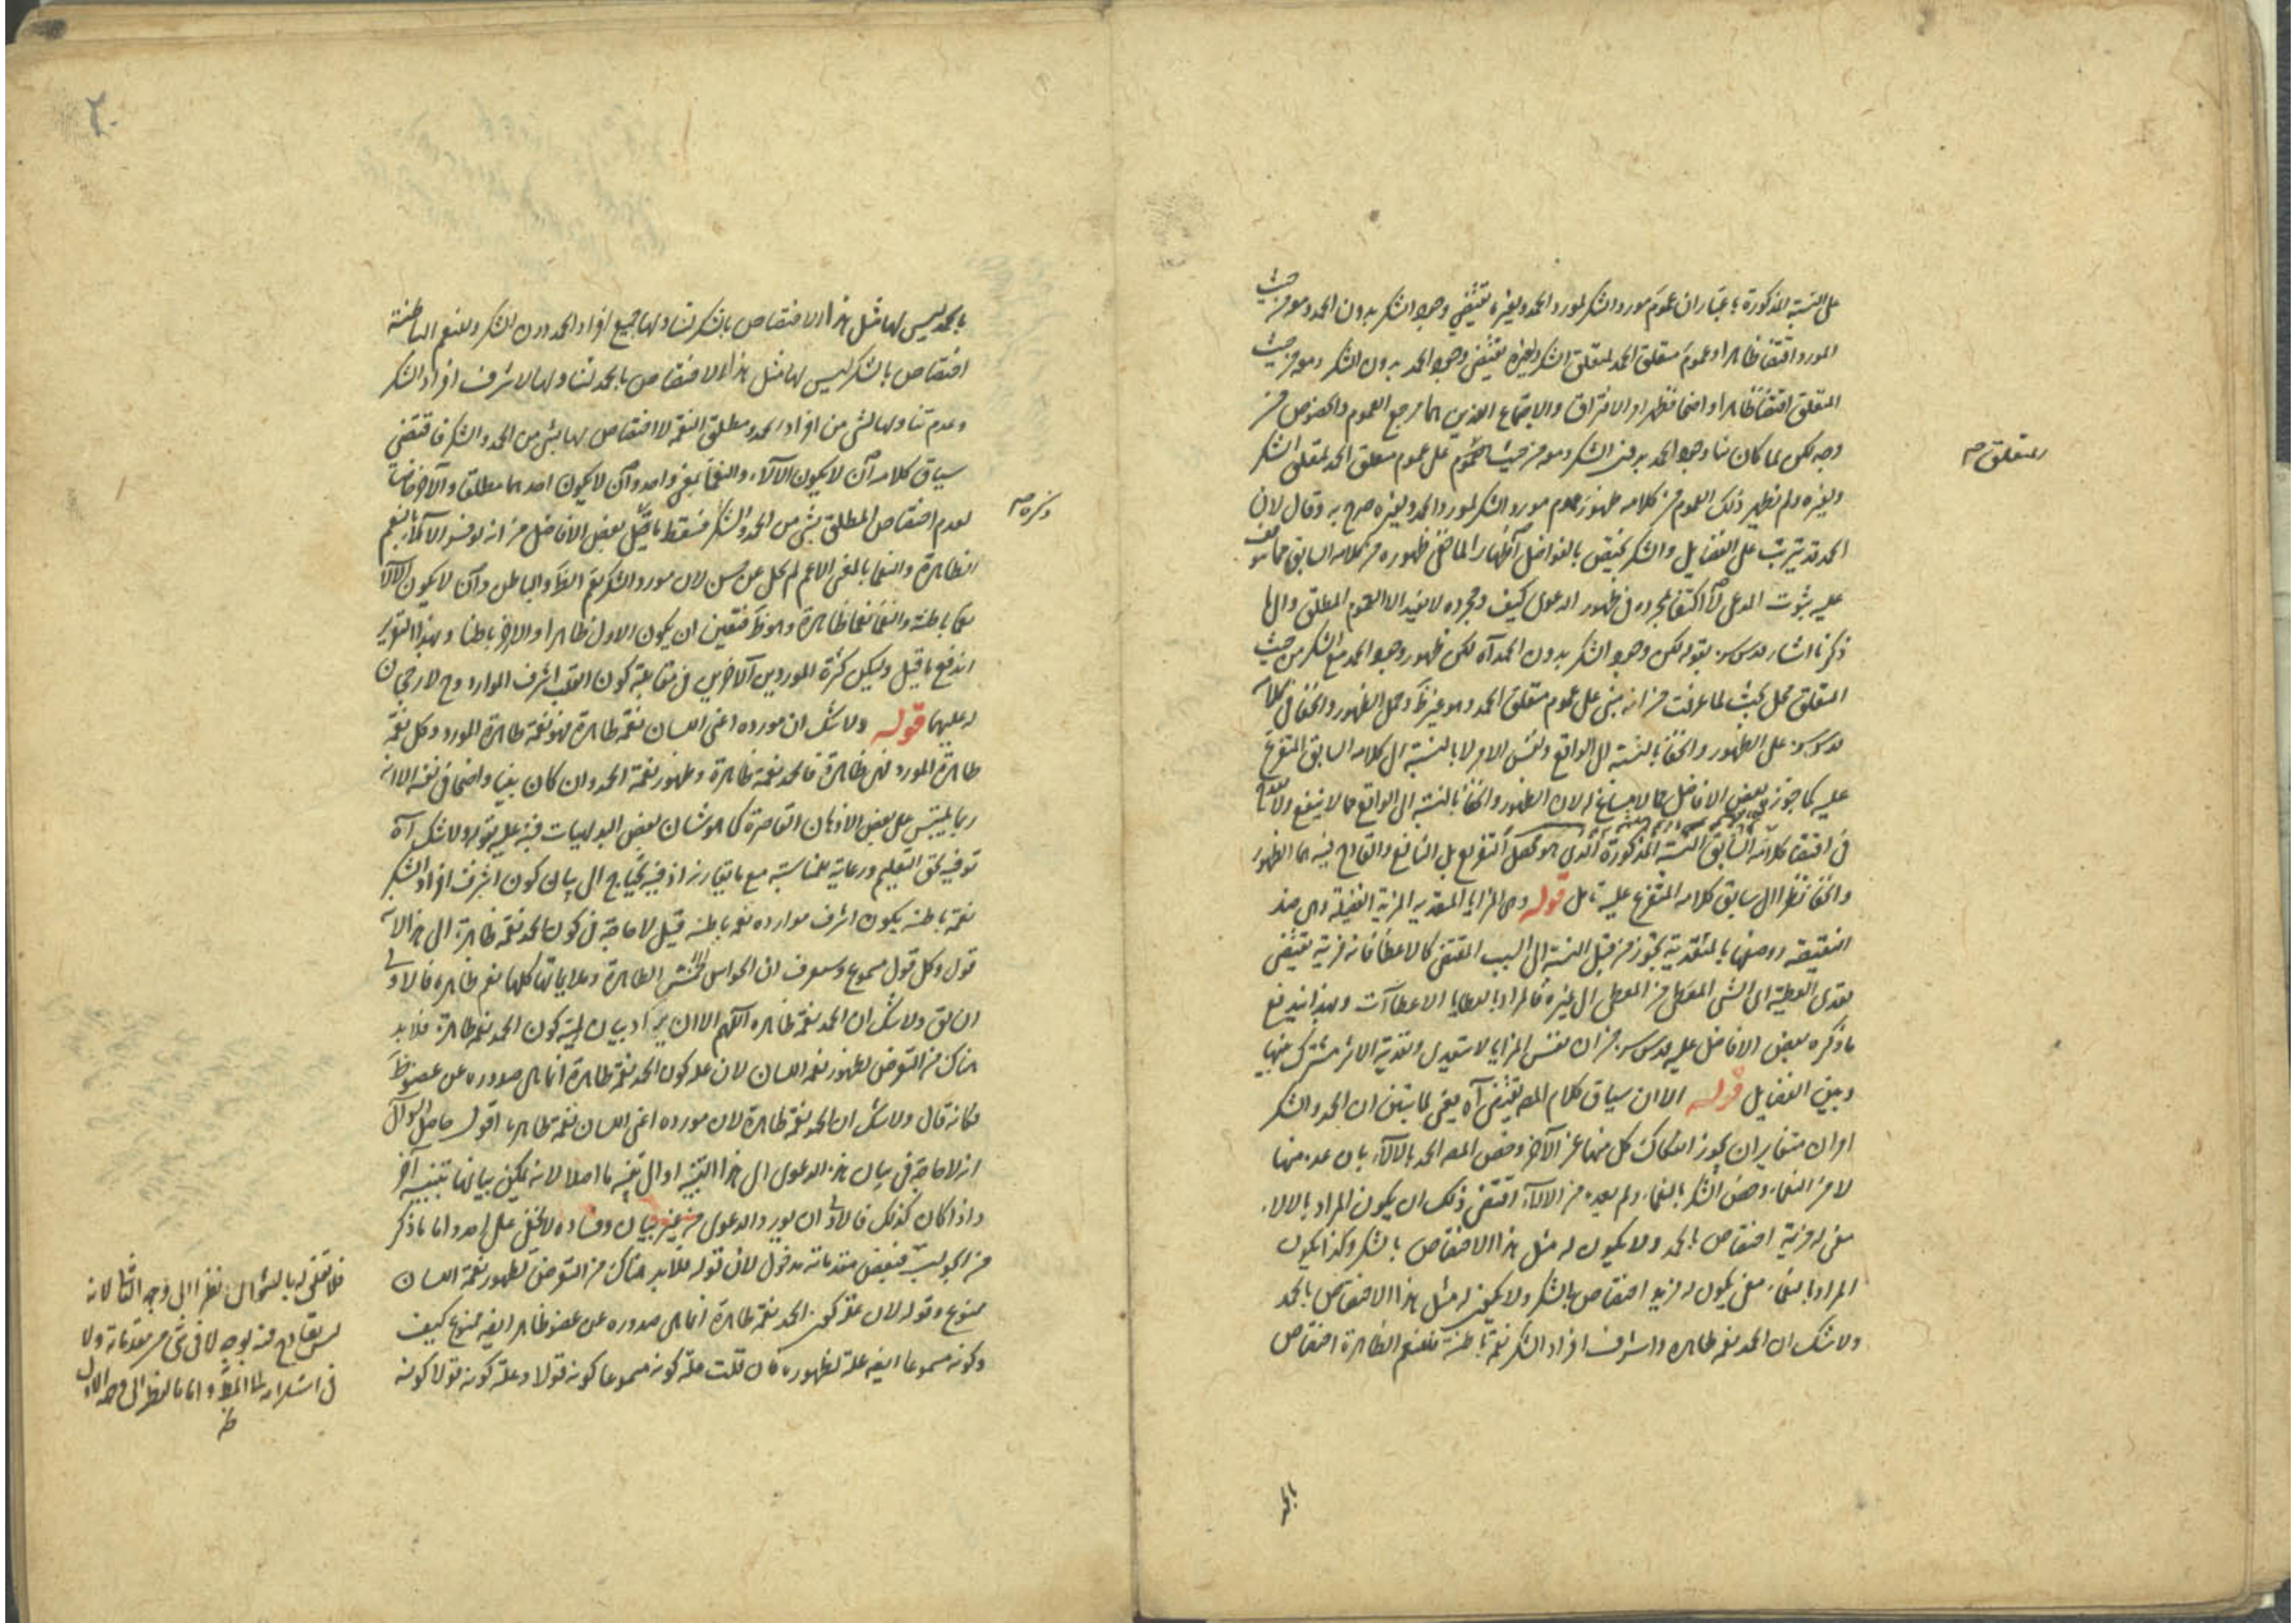 على النسبة المذكورة باعتبار ان عموم مورد الشكر لمورد الحمد ولغيره يقتضي وجود الشكر بدون الحمد ومعه من حيث
المورد اقتضاء ظاهرا وعموم متعلق الحمد لمتعلق الشكر ولغيره يقتضي وجود الحمد بدون الشكر ومعه من حيث
المتعلق اقتضاء ظاهرا واضحا فظهر امر الافتراق والاجتماع الذين هما مرجع العموم والخصوص من
وجه لكن لما كان بناء وجود الحمد بدون الشكر ومعه من حيث العموم على عموم متعلق الحمد لمتعلق الشكر
متعلق صح
ولغيره ولم يظهر ذلك العموم من كلامه ظهور عموم مورد الشكر لمورد الحمد ولغيره صرح به وقال لان
الحمد قد يترتب على الفضايل والشكر يختص بالفواضل اظهارا لما خفي ظهوره من كلامه السابق مما يتوقف
عليه ثبوت المدعى لا اكتفاء بمجرده في ظهور الدعوى كيف ومجرده لا يفيد الا العموم المطلق والى ما
ذكرنا اشار قدس سره بقوله لكن وجود الشكر بدون الحمد آه لكن ظهور وجود الحمد مع الشكر من حيث
المتعلق محل بحث لما عرفت من انه مبني على عموم متعلق الحمد وهو غير ظ وحمل الظهور والخفاء في كلامه
قدس سره على الظهور والخفاء بالنسبة الى الواقع ونفس الامر لا بالنسبة الى كلامه السابق المتفرع
عليه كما جوزه بعض الافاضل مما لا مساغ له لان الظهور والخفاء بالنسبة الى الواقع مما لا ينفع ولا
في اقتضاء كلامه السابق النسبة المذكورة الذي هو محصل التفريع بل النافع والقادح فيه هما الظهور
والخفاء نظرا الى سابق كلامه المتفرع عليه تأمل قوله وهى المزايا المتعدية المزية الفضيلة وهى ضد
النقيصة ووصفها بالمتعدية تجوز من قبيل النسبة الى السبب المقتضى كالاعطاء فانه مزية يقتضى
تعدى العطية اى الشىء المعطى من المعطى الى غيره فالمراد بالعطايا الاعطاآت وبهذا يندفع
ما ذكره بعض الافاضل عليه قدس سره من ان نفس المزايا لا يتعدى وتعدية الاثر مشترك بينها
وبين الفضايل قوله الا ان سياق كلام المص يقتضى آه يعنى لما تبين ان الحمد والشكر
امران متغايران يجوز انفكاك كل منهما عن الآخر وخص المص الحمد بالآلاء بان عده منها
لا من النعماء وخص الشكر بالنعماء ولم يعده من الآلاء اقتضى ذلك ان يكون المراد بالآلاء
معنى له مزية اختصاص بالحمد ولا يكون له مثل هذا الاختصاص بالشكر وكذا يكون
المراد بالنعماء معنى يكون له مزيد اختصاص بالشكر ولا يكون له مثل هذا الاختصاص بالحمد
ولا شك ان الحمد نعمة ظاهرة واشرف افراد الشكر نعمة باطنة فللنعم الظاهرة اختصاص
بالحمد ليس لها مثل هذا الاختصاص بالشكر لتناولها جميع افراد الحمد دون الشكر وللنعم الباطنة
اختصاص بالشكر ليس لها مثل هذا الاختصاص بالحمد لتناولها لاشرف افراد الشكر
وعدم تناولها لشىء من افراد الحمد ومطلق النعمة لا اختصاص لها بشىء من الحمد والشكر فاقتضى
سياق كلامه ان لا يكون الآلاء والنعماء بمعنى واحد وان لا يكون احدهما مطلقا والآخر خاصا
لعدم اختصاص المطلق بشىء من الحمد والشكر فسقط ما قيل بعض الافاضل من انه لو فسر الآلاء بالنعم
ذكره صح
الظاهرة والنعماء بالمعنى الاعم لم يخل عن حسن لان مورد الشكر يعم الظ والباطن وان لا يكون الآلاء
نعما باطنة والنعماء نعما ظاهرة وهو ظ فتعين ان يكون الاول ظاهرا والاخر باطنا وبهذا التقرير
اندفع ما قيل وليكن كثرة الموردين الآخرين في مقابلة كون القلب اشرف الموارد وح لا رجحان
له عليهما قوله ولا شك ان مورده اعنى اللسان نعمة ظاهرة فهو نعمة ظاهرة المورد وكل نعمة
ظاهرة المورد فهى ظاهرة فالحمد نعمة ظاهرة وظهور نعمة الحمد وان كان بينا واضحا في نفسه الا انه
ربما يلتبس على بعض الاذهان القاصرة كما هو شان بعض البديهيات فنبه عليه بقوله ولا شك آه
توفية لحق التعليم ورعاية للمناسبة مع ما يقارنه اذ فيه يحتاج الى بيان كون اشرف افراد الشكر
نعمة باطنة بكون اشرف موارده نعمة باطنة قيل لا حاجة في كون الحمد نعمة ظاهرة الى هذا لانه
قول وكل قول مسموع ومعروف ان الحواس الخمس الظاهرة وعطاياتها كلها نعم ظاهرة فالاولى
ان يق ولا شك ان الحمد نعمة ظاهرة اللهم الا ان يراد بيان لمية كون الحمد نعمة ظاهرة فلا بد
هناك من التعرض لظهور نعمة اللسان لان علة كون الحمد نعمة ظاهرة انما هى صدوره عن عضو ظ
فكانه قال ولا شك ان الحمد نعمة ظاهرة لان مورده اعنى اللسان نعمة ظاهرة اقول حاصل السوال
انه لا حاجة في بيان هذه الدعوى الى هذا التنبيه او الى تنبيه ما اصلا لانه يمكن بيانها بتنبيه آخر
واذا كان كذلك فالاولى ان يورد الدعوى من غير بيان وفساده لا يخفى على احد واما ما ذكر
من الجواب فبعض مقدماته مدخول لان قوله فلا بد هناك من التعرض لظهور نعمة اللسان
ممنوع وقوله لان علة كون الحمد نعمة ظاهرة انما هى صدوره عن عضو ظاهر ايضا ممنوع كيف
وكونه مسموعا ايضا علة لظهوره فان قلت علة كونه مسموعا كونه قولا وعلة كونه قولا كونه
فلا تعلق له بالسؤال نظرا الى وجه الثانى لانه
ليس بقادح فيه بوجه لا فى شىء من مقدماته ولا
فى استلزامه لما المط واما بالنظر الى وجه الاول
ظ
الحمد